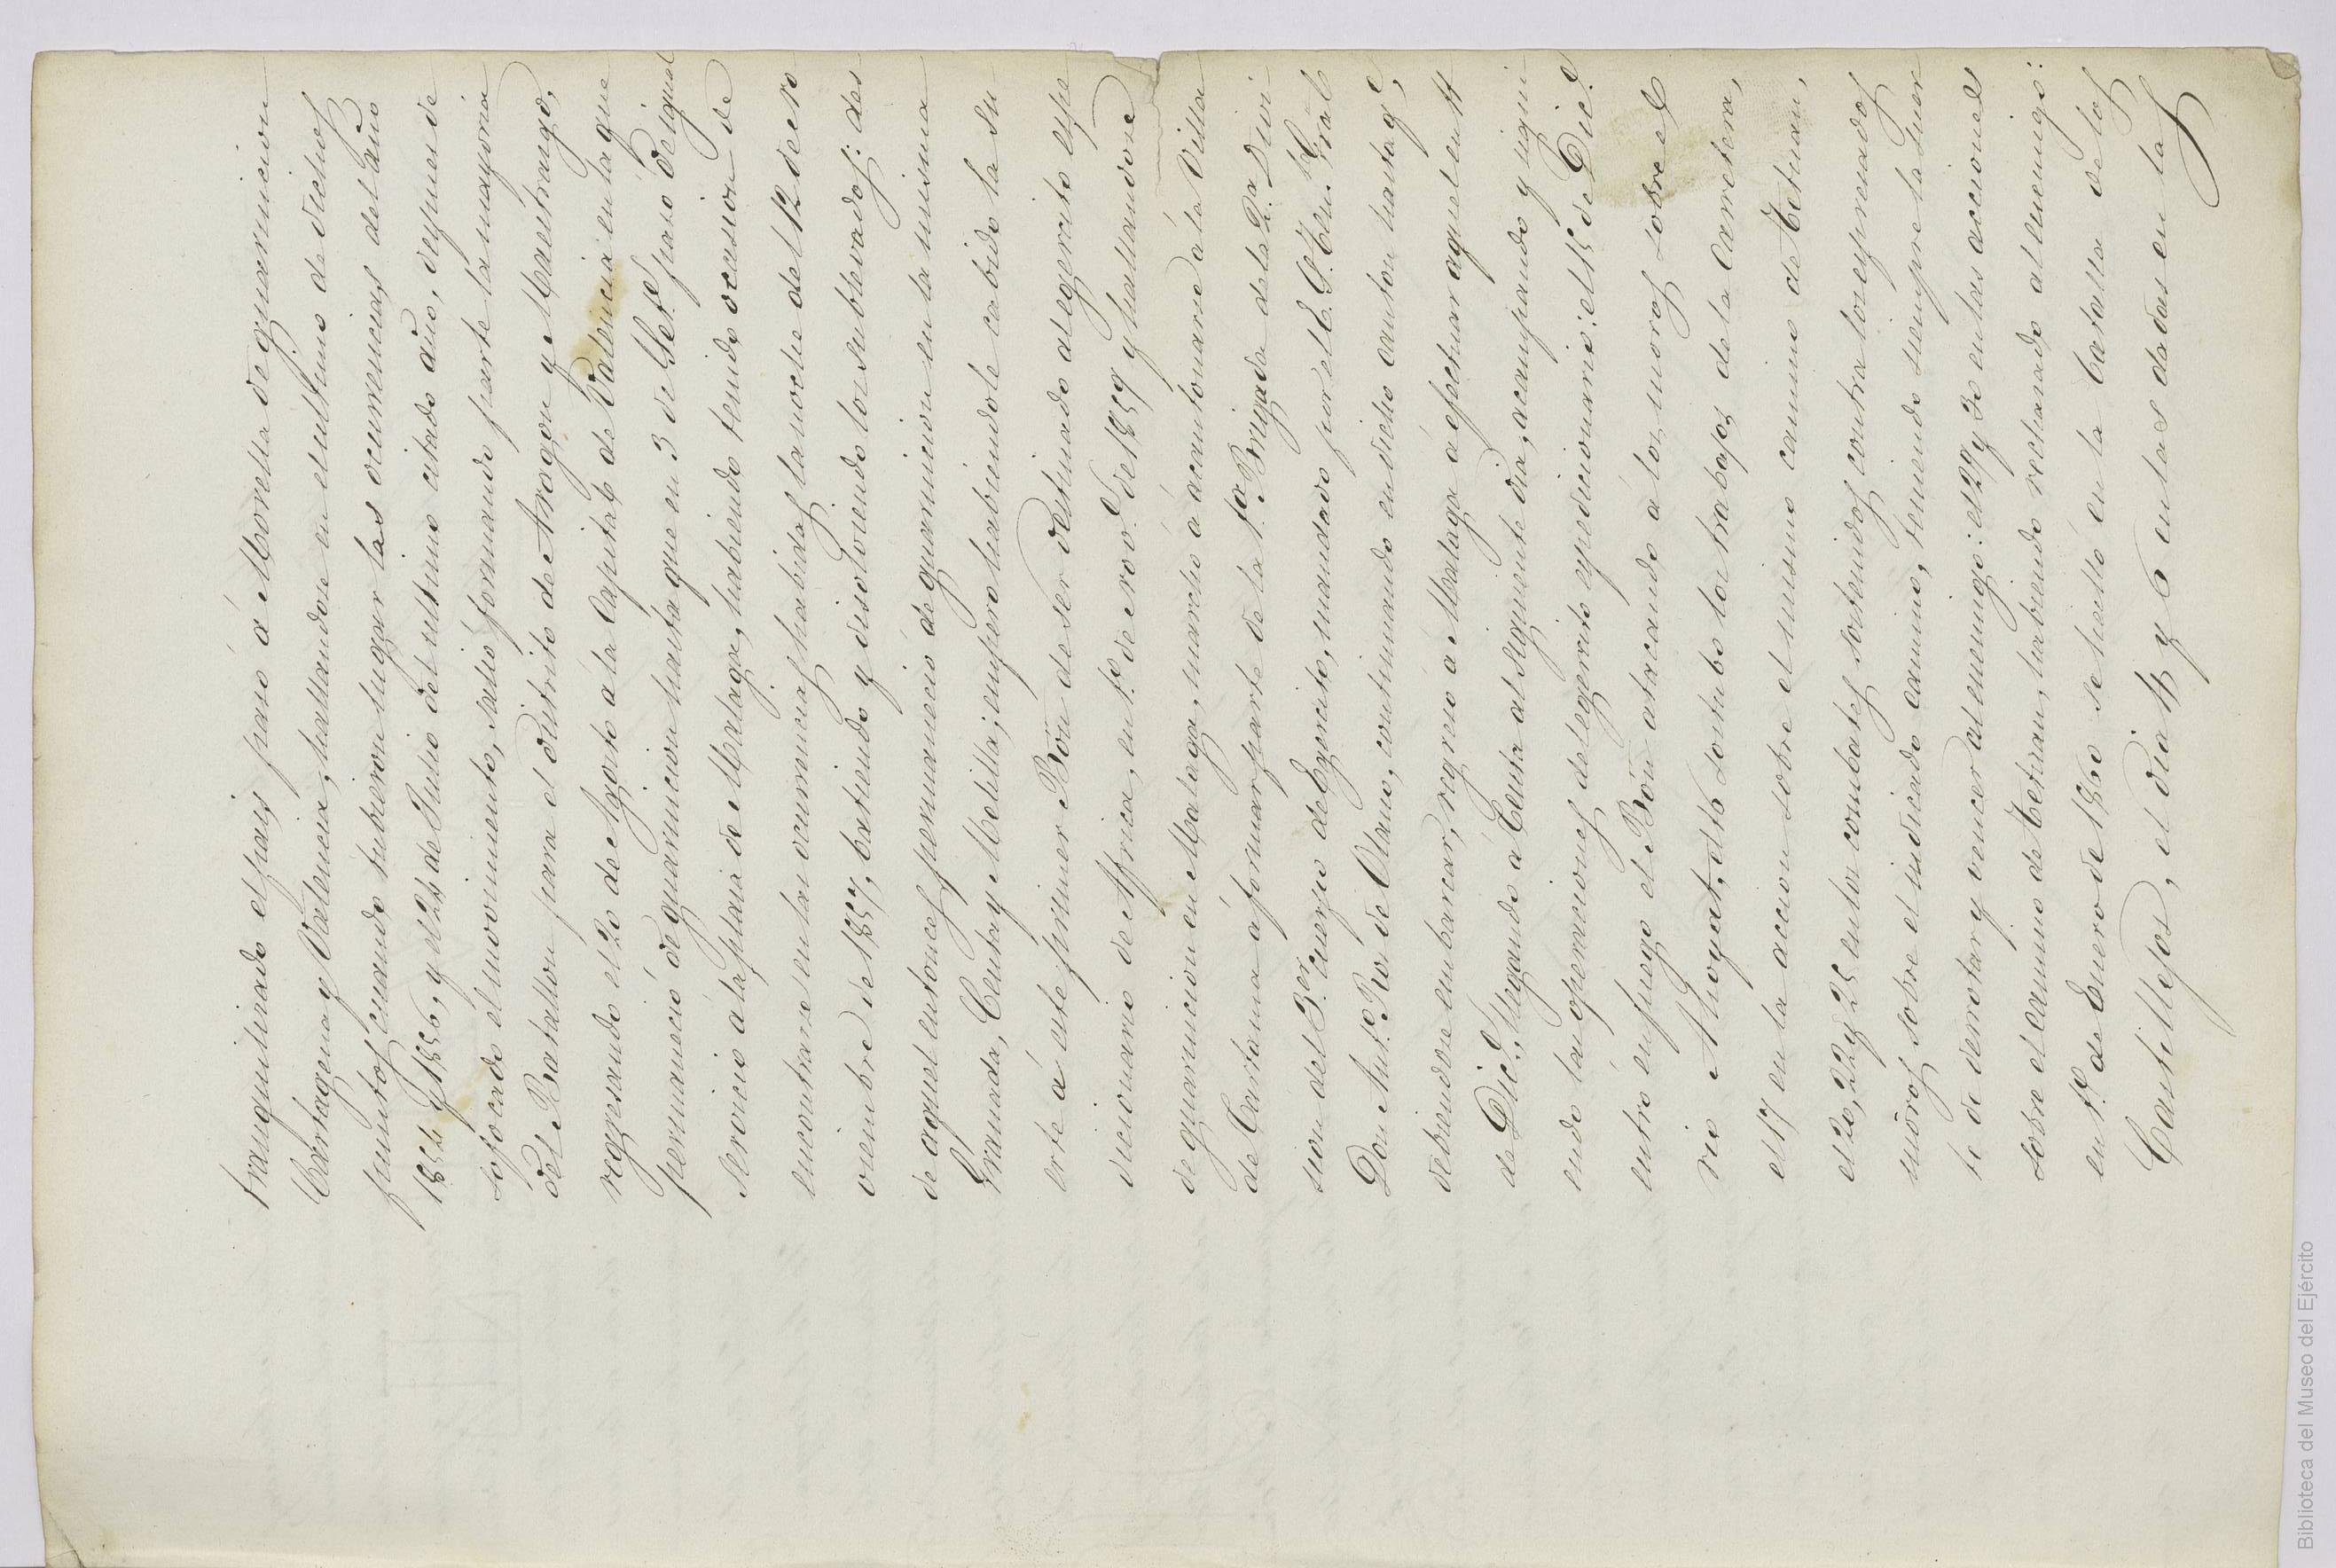 tranquilizado el pais paso á Morella de guarnicion
Cartagena y Valencia, hallandose en el ultimo de dichos
puntos cuando tubieron lugar las ocurrencias del año
1854 y 1856, y el 24 de Julio del ultimo citado año, despues de
sofocado el movimiento, salio formando parte la mayoria
del Batallon para el distrito de Aragon y Maestrazgo,
regresando el 20 de Agosto á la Capital de Valencia en la que
permaneció de guarnicion hasta que en 3 de Set.e paso de igual
servicio á la plaza de Malaga, habiendo tenido ocasion de
encontrarse en las ocurrencias habidas la noche del 12 de No
viembre de 1857, batiendo y disolviendo los sublevados: des
de aquel entonces permaneció de guarnicion en la misma
Granada, Ceuta y Melilla; empero habiendole cabido la su
erte á este primer Bon de ser destinado al egercito espe
dicionario de Africa, en 1.o de Nov.e de 1859 y hallandose
de guarnicion en Malaga, marchó á acantonarse á la Villa
de Cartama á formar parte de la 1.a Brigada de la 2.a Divi
sion del 3.er Cuerpo de Egercito, mandado por el E. S. Ten.te Gral
Don Ant.o Ros de Olano, continuando en dicho canton hasta q.e
debiendose embarcar, regresó á Malaga á efectuar aquel en 11
de Dic.e, llegando á Ceuta al siguiente dia, acampando y sigui
endo las operaciones del egercito expedicionario: el 15 de Dic.e
entró en fuego el Bon atacando á los moros sobre el
rio, el 16 sostubo los trabajos de la Carretera,
el 17 en la accion sobre el mismo camino de Tetuan,
el 20, 22 y 25 en los combates sostenidos contra los espresados
moros sobre el indicado camino, teniendo siempre la suer
te de derrotar y vencer al enemigo: el 29 y 30 en las acciones
sobre el camino de Tetuan, habiendo rechazado al enemigo:
en 1.o de Enero de 1860 se halló en la batalla de los
Castillejos, el dia 4 y 6 en las dadas en las
Biblioteca del Museo del Ejército